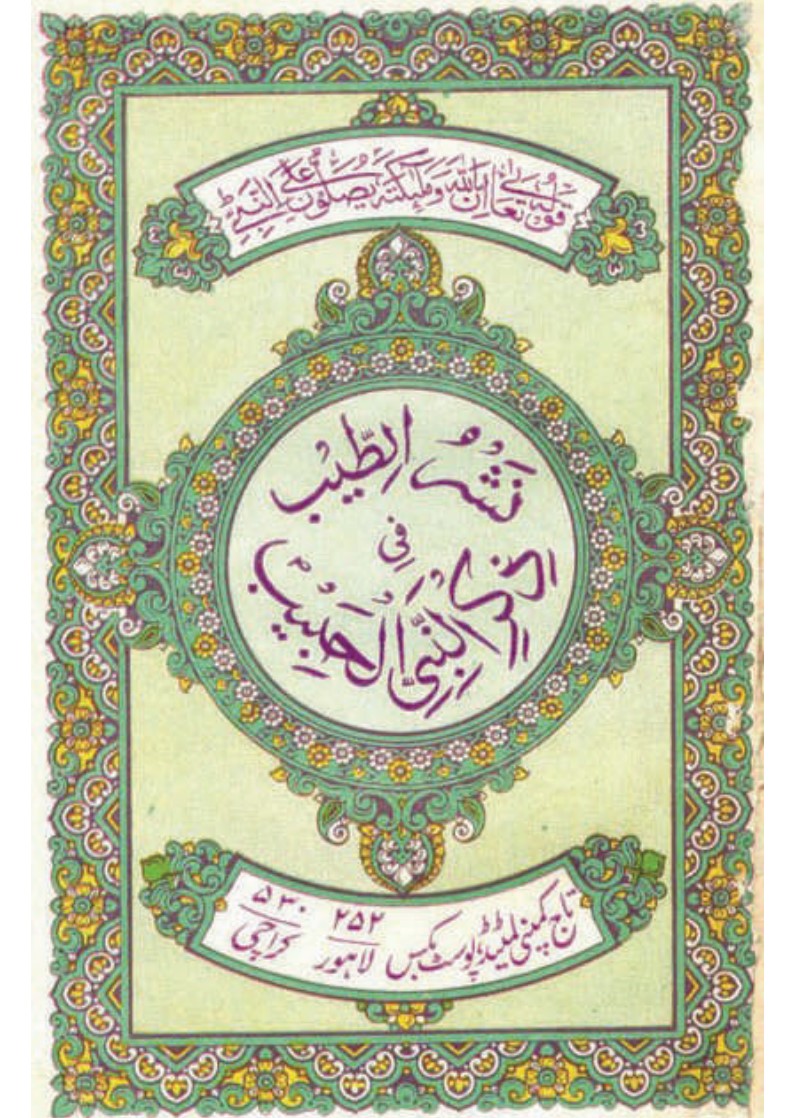 قوله تعالى ان الله وملٓئكته يصلون على النبى ط
نَشْرُ الطِّيْب
فِى
ذِكْرِ النَّبِىِّ الْحَبِيْبِ
تاج کمپنی لمیٹڈ، پوسٹ بکس ۲۵۲ لاہور ۵۳۰ کراچی